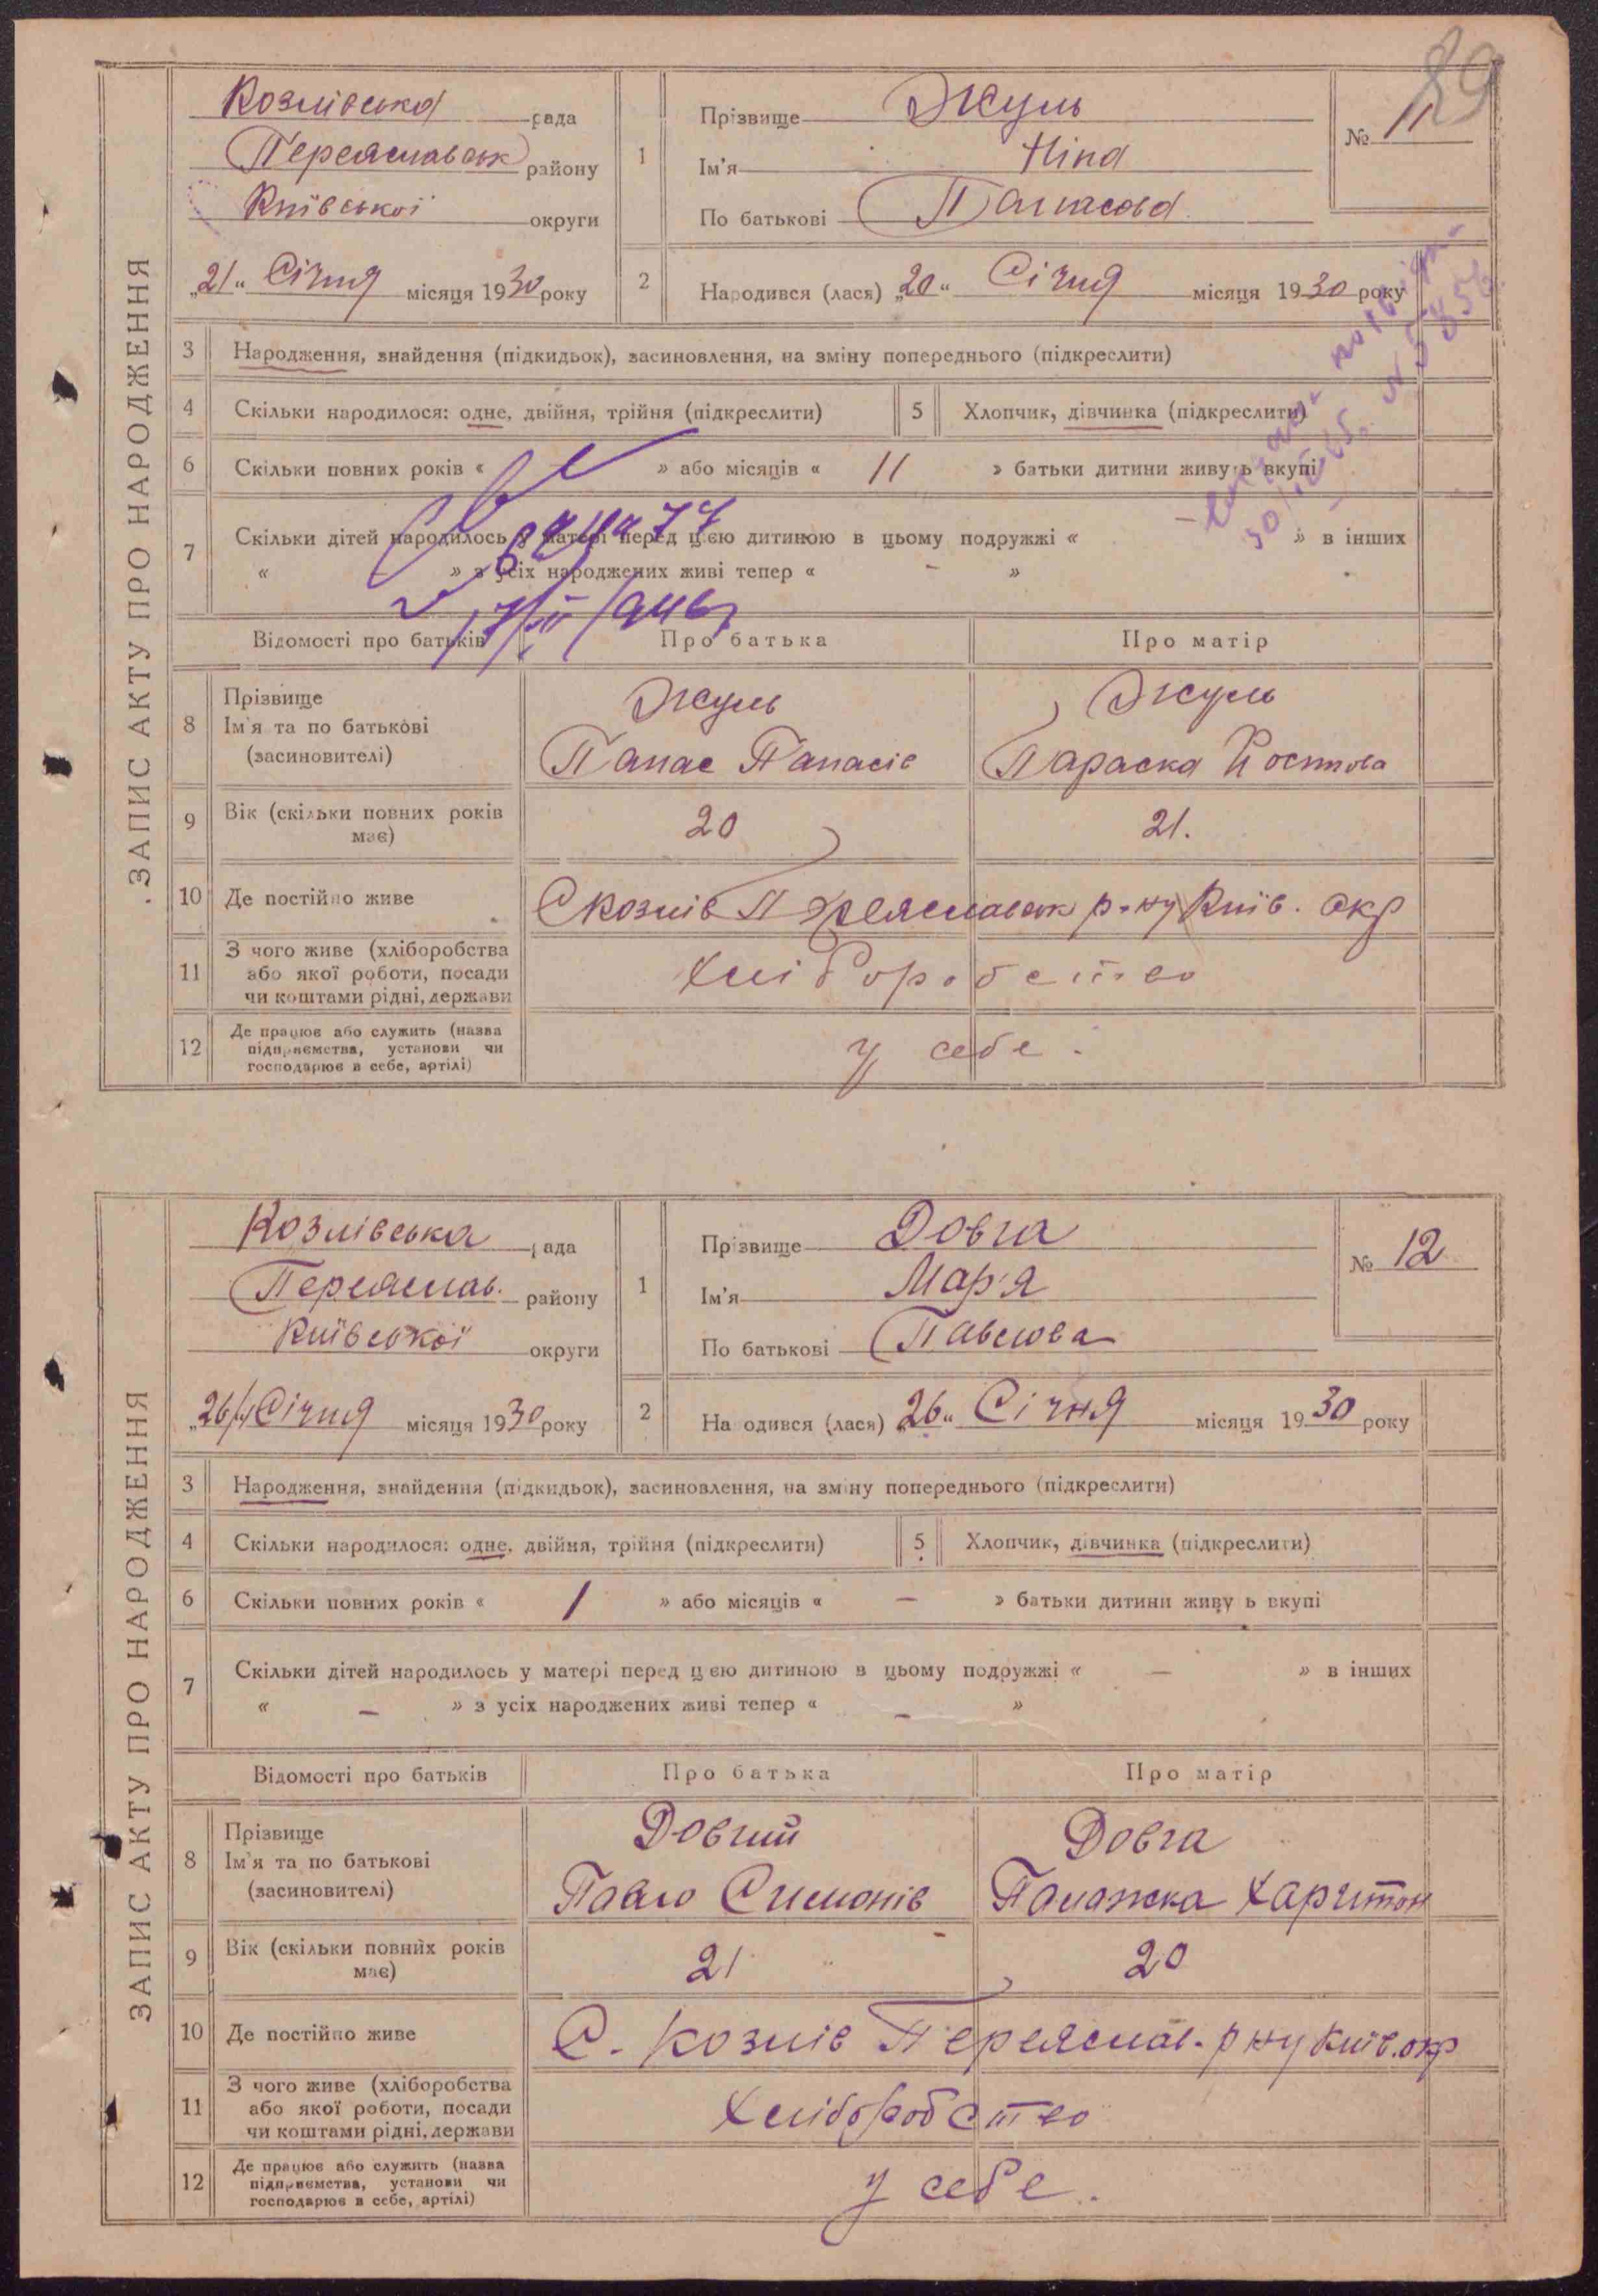 89
ЗАПИС АКТУ ПРО НАРОДЖЕННЯ
Козлівська рада
Переяславськ району
Київської округи
„21“ Січня місяця 1930 року
1 Прізвище Жуль
Ім'я Ніна
По батькові Панасова
№ 11
2 Народився (лася) „20“ Січня місяця 1930 року
3 Народження, знайдення (підкидьок), засиновлення, на зміну попереднього (підкреслити)
4 Скільки народилося: одне, двійня, трійня (підкреслити) 5 Хлопчик, дівчинка (підкреслити)
6 Скільки повних років « » або місяців « 11 » батьки дитини живуть вкупі
7 Скільки дітей народилось у матері перед цією дитиною в цьому подружжі « » в інших
« » з усіх народжених живі тепер « - »
Відомості про батьків Про батька Про матір
8 Прізвище Ім'я та по батькові (засиновителі)
Жуль Жуль
Панас Панасів Параска Костова
9 Вік (скільки повних років має) 20 21.
10 Де постійно живе С Козлів Переяславськ р-ну Київ. окр
11 З чого живе (хліборобства або якої роботи, посади чи коштами рідні, держави Хліборобство
12 Де працює або служить (назва підприємства, установи чи господарює в себе, артілі) у себе.
ЗАПИС АКТУ ПРО НАРОДЖЕННЯ
Козлівська рада
Переяслав. району
Київської округи
Січня місяця 1930 року
1 Прізвище Довга
Ім'я Мар'я
По батькові Павлова
№ 12
2 Народився (лася) „26“ Січня місяця 1930 року
3 Народження, знайдення (підкидьок), засиновлення, на зміну попереднього (підкреслити)
4 Скільки народилося: одне, двійня, трійня (підкреслити) 5 Хлопчик, дівчинка (підкреслити)
6 Скільки повних років « 1 » або місяців « — » батьки дитини живуть вкупі
7 Скільки дітей народилось у матері перед цією дитиною в цьому подружжі « — » в інших
« — » з усіх народжених живі тепер « — »
Відомості про батьків Про батька Про матір
8 Прізвище Ім'я та по батькові (засиновителі)
Довгий Довга
Павло Симонів Палажка Харитон
9 Вік (скільки повних років має) 21 20
10 Де постійно живе С. Козлів Переяслав. р ну Київ. окр
11 З чого живе (хліборобства або якої роботи, посади чи коштами рідні, держави Хліборобство
12 Де працює або служить (назва підприємства, установи чи господарює в себе, артілі) у себе.